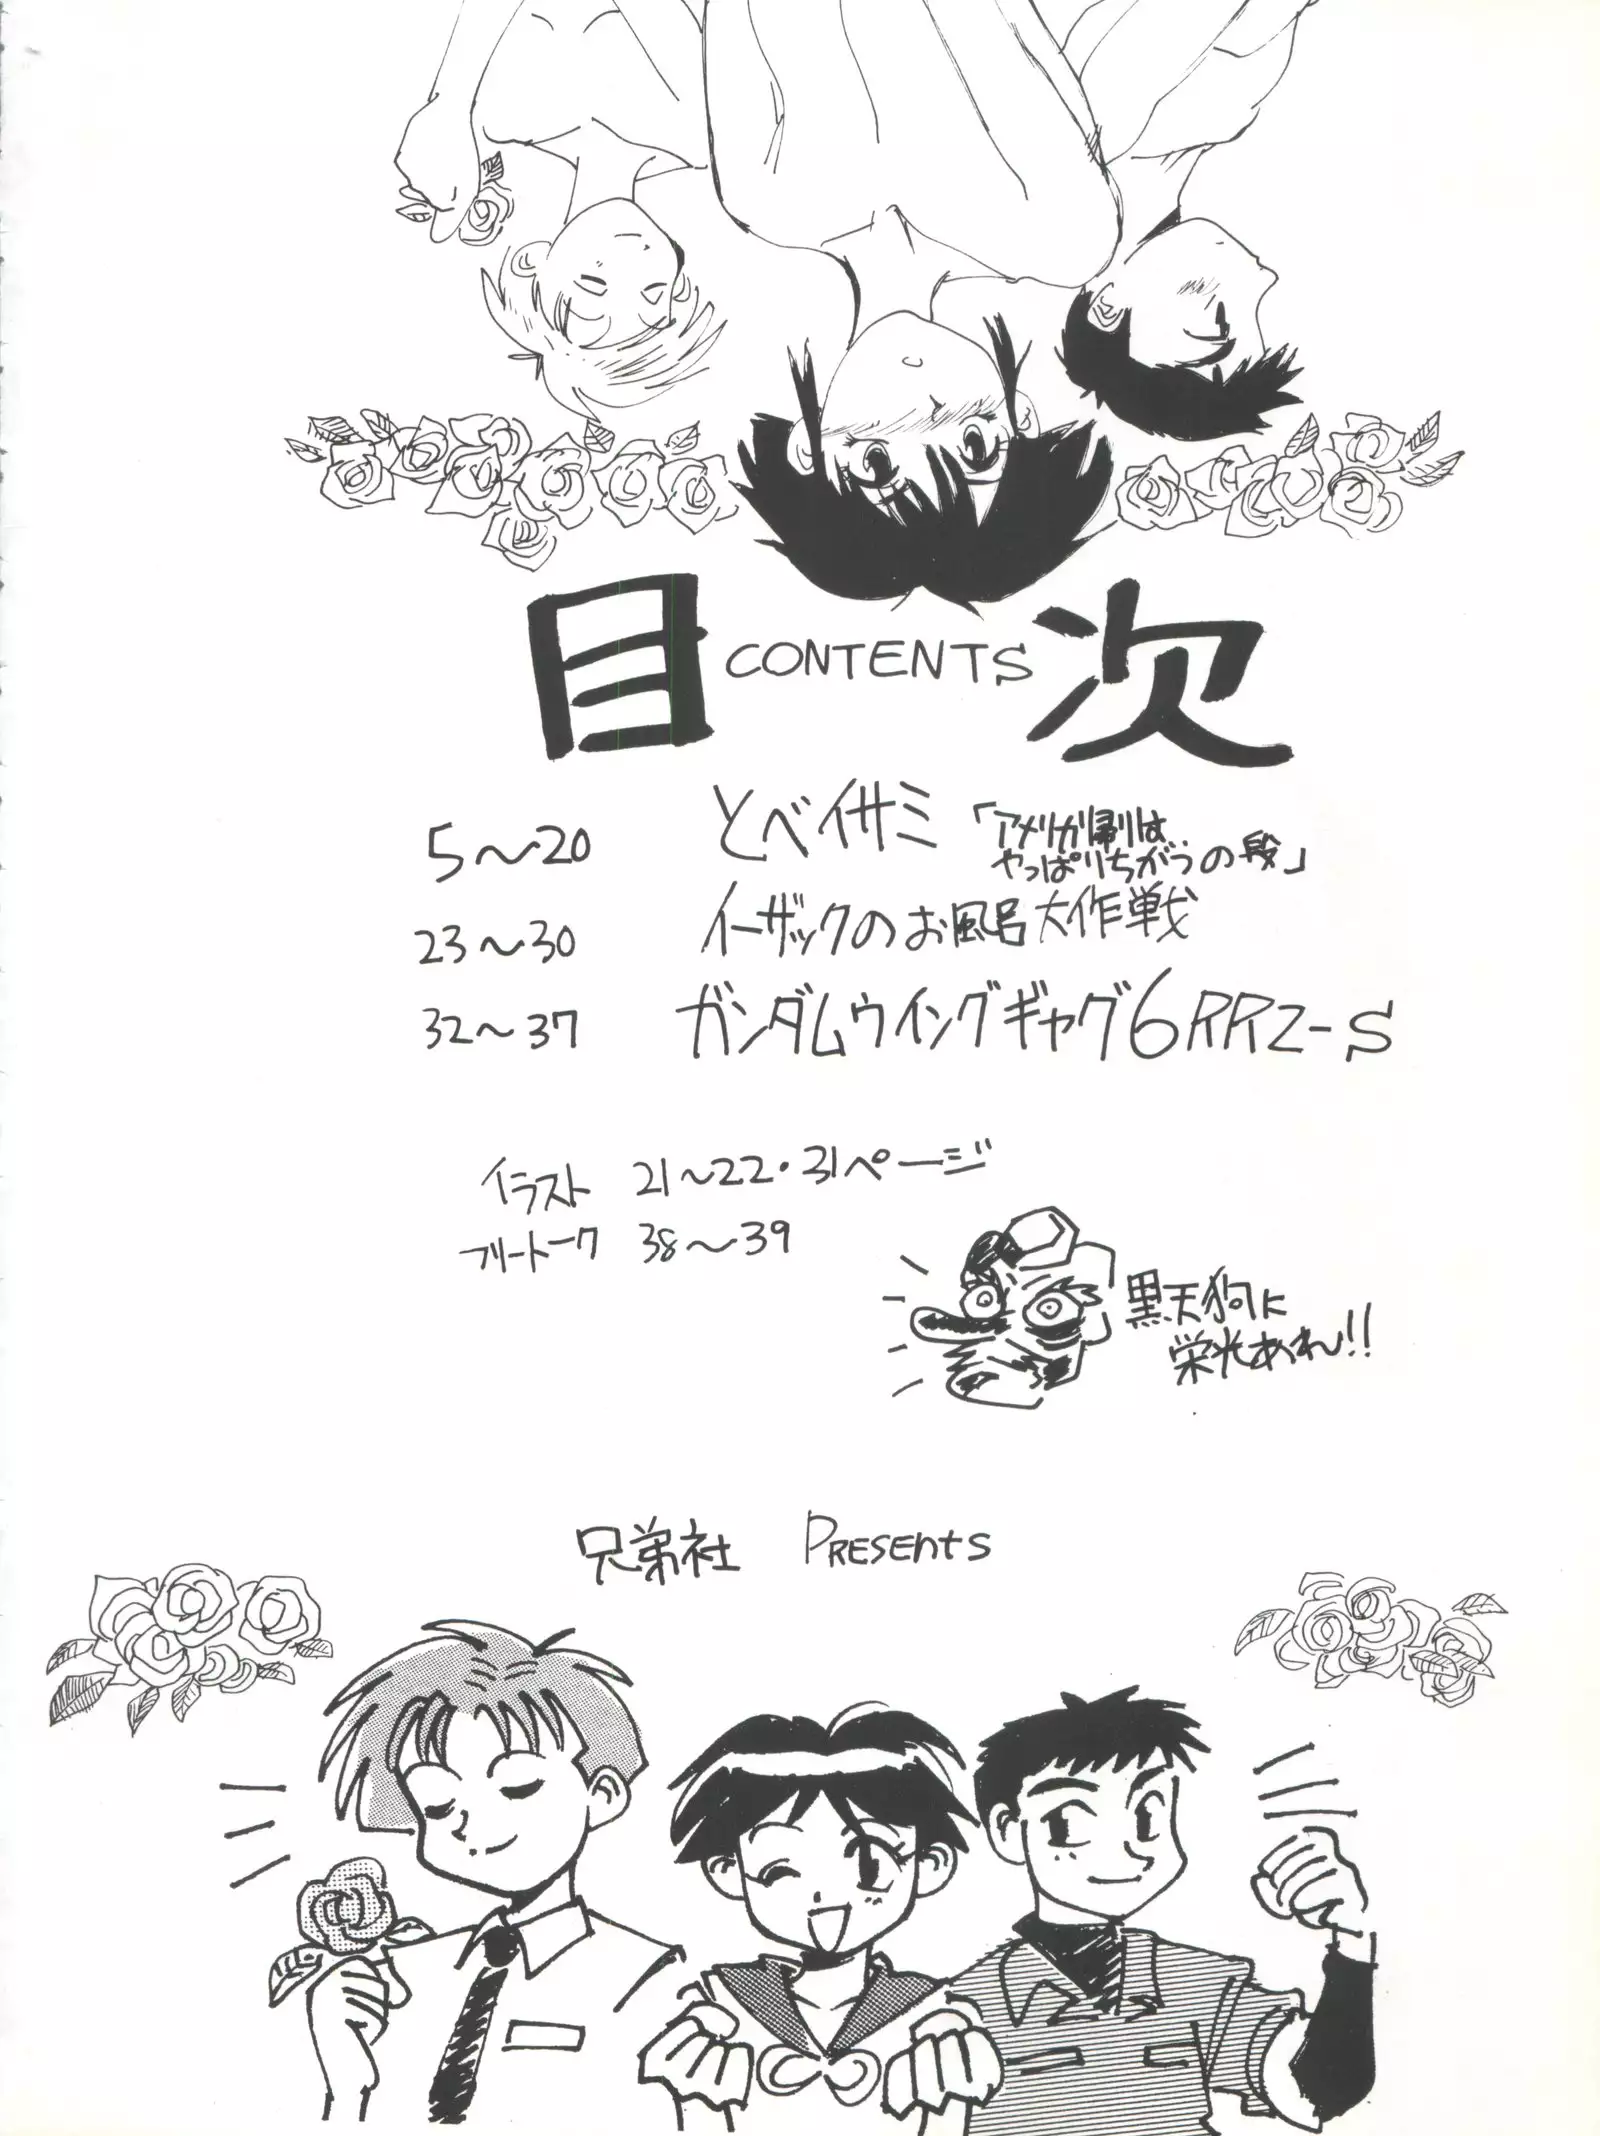 目 CONTENTS 次
5〜20 とべイサミ「アメリカ帰りは
やっぱりちがうの段」
23〜30 イーザックのお風呂大作戦
32〜37 ガンダムウイングギャグ6RPZ-S
イラスト 21〜22・31ページ
フリートーク 38〜39
黒天狗に
栄光あれ!!
兄弟社 PRESENtS